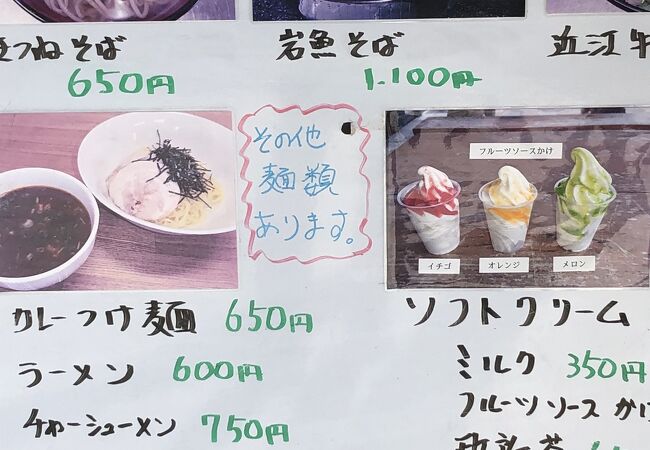 きつねそば
650円
岩魚そば
1.100円
近江牛
その他
麺類
あります。
フルーツソースかけ
イチゴ
オレンジ
メロン
カレーつけ麺 650円
ラーメン 600円
チャーシューメン 750円
ソフトクリーム
ミルク 350円
フルーツソースかけ